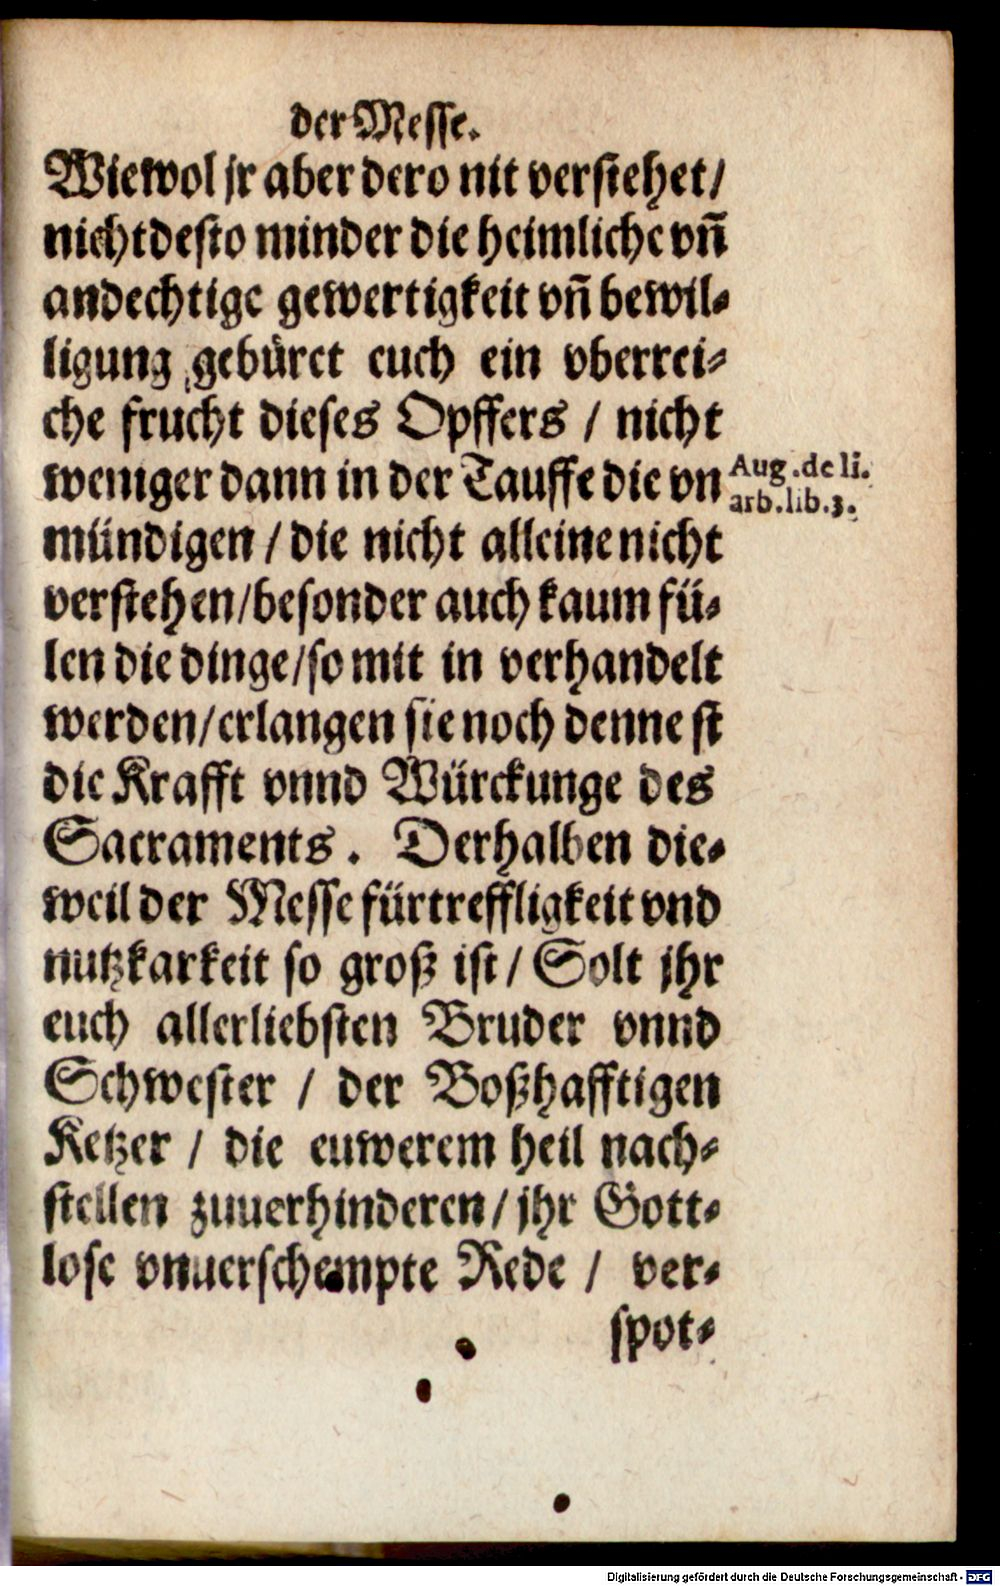 der Messe.
Wiewol jr aber dero nit verstehet/
nichtdesto minder die heimliche vñ
andechtige gewertigkeit vñ bewil-
ligung gebüret euch ein vberrei-
che frucht dieses Opffers / nicht
weniger dann in der Tauffe die vn
mündigen / die nicht alleine nicht
verstehen/besonder auch kaum fü-
len die dinge/so mit in verhandelt
werden/erlangen sie noch dennest
die Krafft vnnd Würckunge des
Sacraments. Derhalben die-
weil der Messe fürtreffligkeit vnd
nutzkarkeit so groß ist / Solt jhr
euch allerliebsten Bruder vnnd
Schwester / der Boßhafftigen
Ketzer / die euwerem heil nach-
stellen zuuerhinderen / jhr Gott-
lose vnuerschempte Rede / ver-
spot-
Aug.de li.
arb.lib.3.
Digitalisierung gefördert durch die Deutsche Forschungsgemeinschaft - DFG